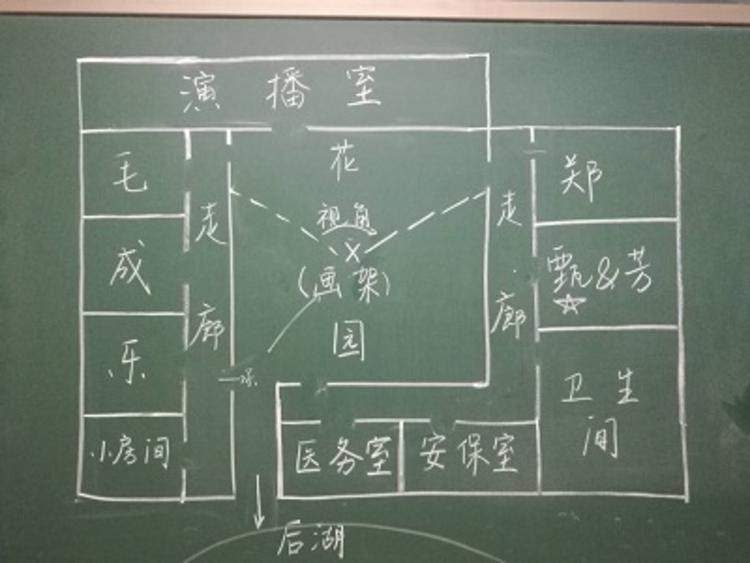 演播室
毛
走廊
花园
郑
走廊
视角
(画架)
成
甄&芳
乐
卫生间
小房间
医务室
安保室
后湖